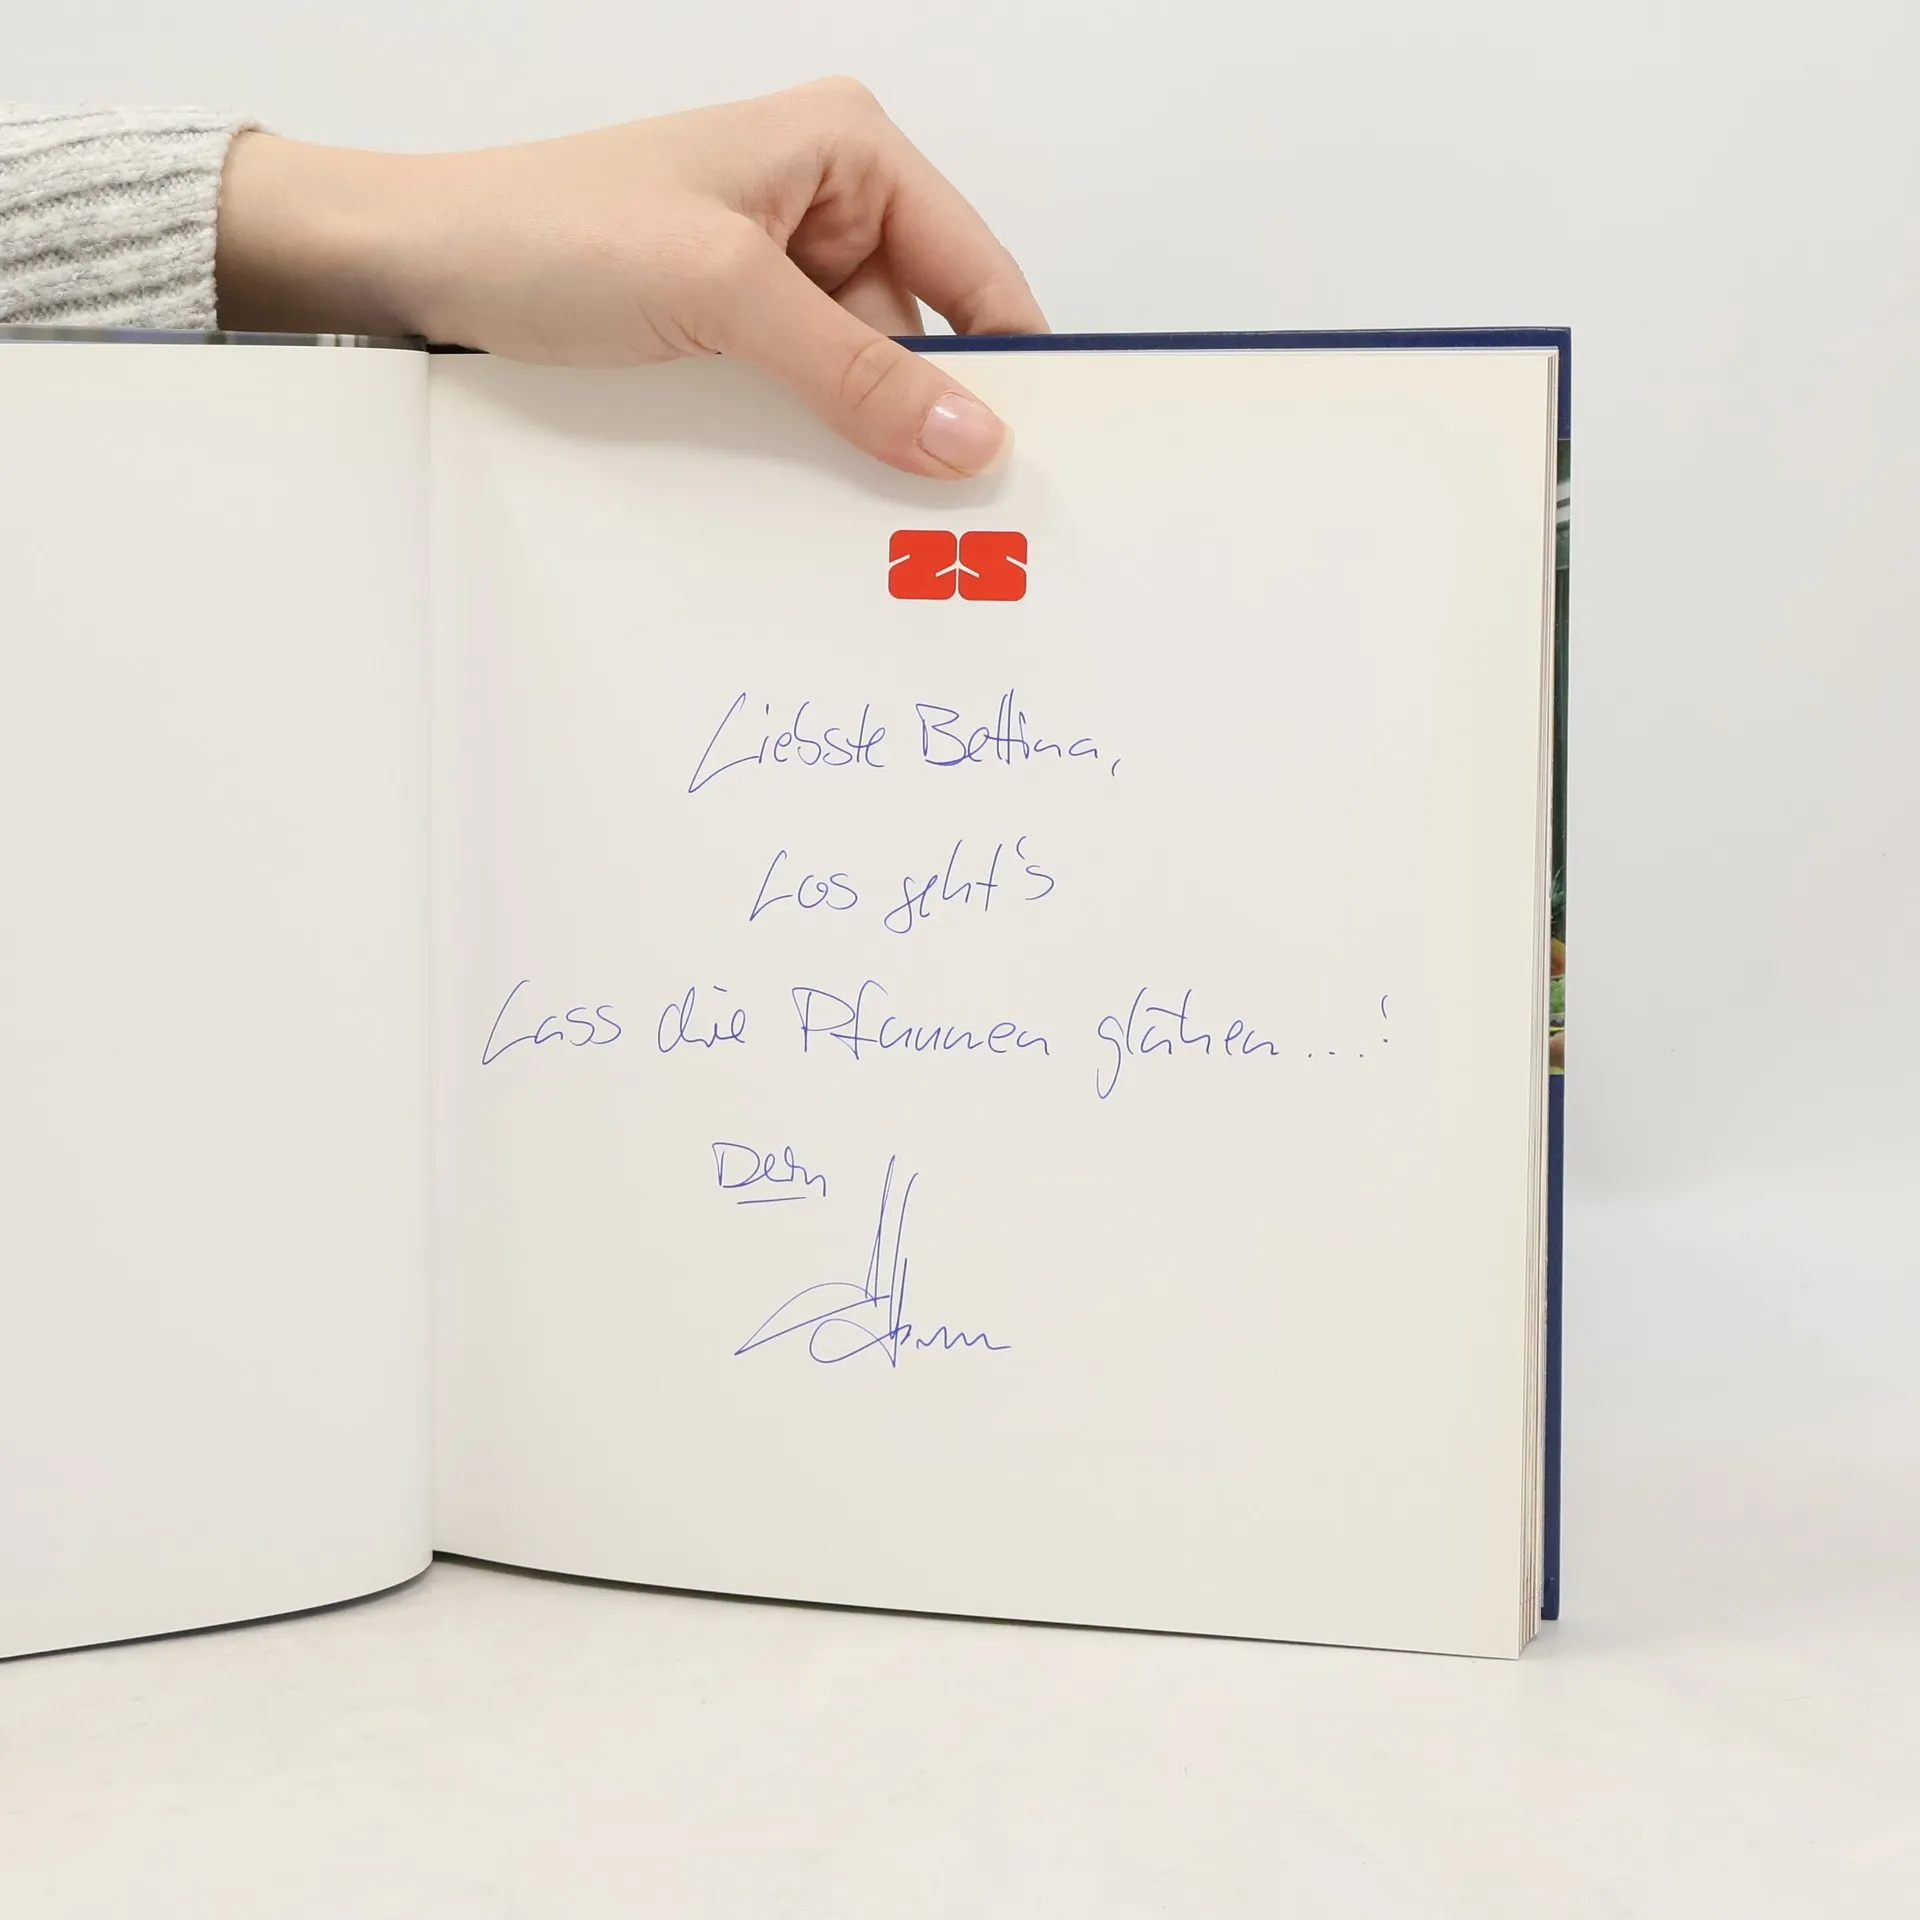 ZS
Liebste Bettina,
Los geht's
Lass die Pfannen glühen...!
Dein